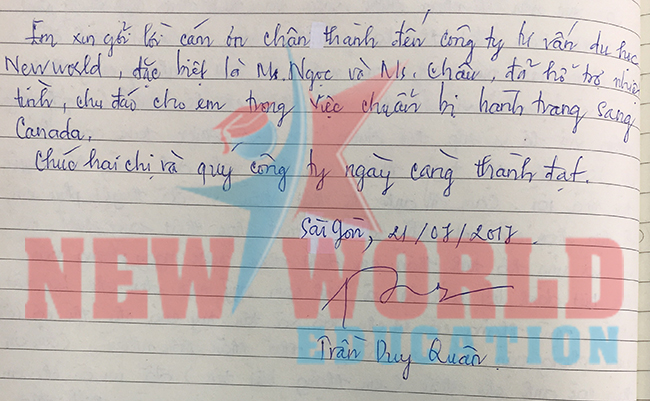 Em xin gởi lời cám ơn chân thành đến công ty tư vấn du học
Newworld, đặc biệt là Ms. Ngọc và Ms. Châu, đã hỗ trợ nhiệt
tình, chu đáo cho em trong việc chuẩn bị hành trang sang
Canada.
Chúc hai chị và quý công ty ngày càng thành đạt.
Sài gòn, 21/07/2017.
NEW WORLD
EDUCATION
Trần Duy Quân